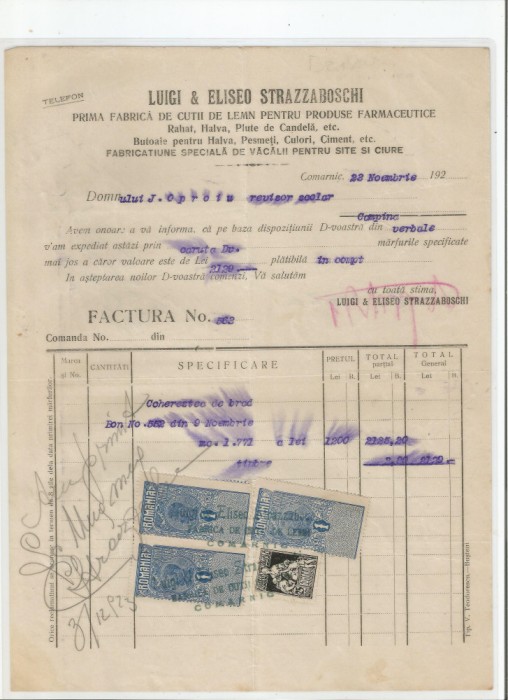 TELEFON
LUIGI & ELISEO STRAZZABOSCHI
PRIMA FABRICĂ DE CUTII DE LEMN PENTRU PRODUSE FARMACEUTICE
Rahat, Halva, Plute de Candelă, etc.
Butoaie pentru Halva, Pesmeți, Culori, Ciment, etc.
FABRICATIUNE SPECIALĂ DE VĂCĂLII PENTRU SITE SI CIURE
Comarnic, 23 Noembrie 192
Domnului J. Oproiu revizor scolar
Campina
Avem onoare a vă informa, că pe baza dispozițiunii D-voastră din verbale
v'am expediat astăzi prin caruta Dv. mărfurile specificate
mai jos a căror valoare este de Lei 2129.— plătibila in compt
In așteptarea noilor D-voastră comenzi, Vă salutăm
cu toată stima,
LUIGI & ELISEO STRAZZABOSCHI
FACTURA No. 563
Comanda No. din
Marca și No. CANTITĂȚI SPECIFICARE PREȚUL Lei B. TOTAL parțial Lei B. TOTAL General Lei B.
Cherestea de brad
Bon No. 552 din 9 Noembrie
mc. 1.771 a lei 1200 2125,20
timbre 2129.—
ROMANIA
1
ROMANIA
1
ROMANIA
1
Luigi & Eliseo Strazzaboschi
FABRICA DE CUTII DE LEMN
COMARNIC
Luigi & Eliseo
FABRICA DE CUTII
COMARNIC
Tip. V. Teodorescu.—Bușteni